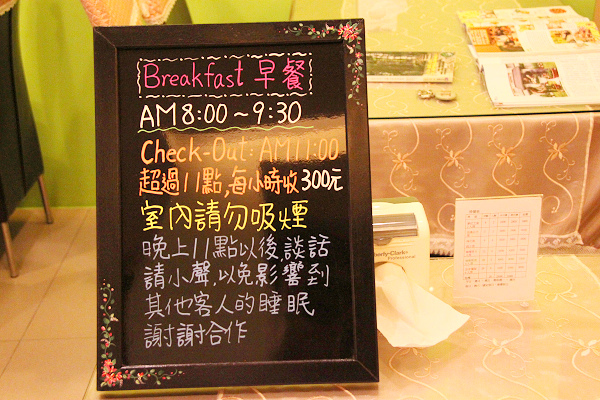 Breakfast 早餐
AM 8:00～9:30
Check-Out: AM 11:00
超過11點,每小時收300元
室內請勿吸煙
晚上11點以後,談話
請小聲,以免影響到
其他客人的睡眠
謝謝合作
Kimberly-Clark
Professional